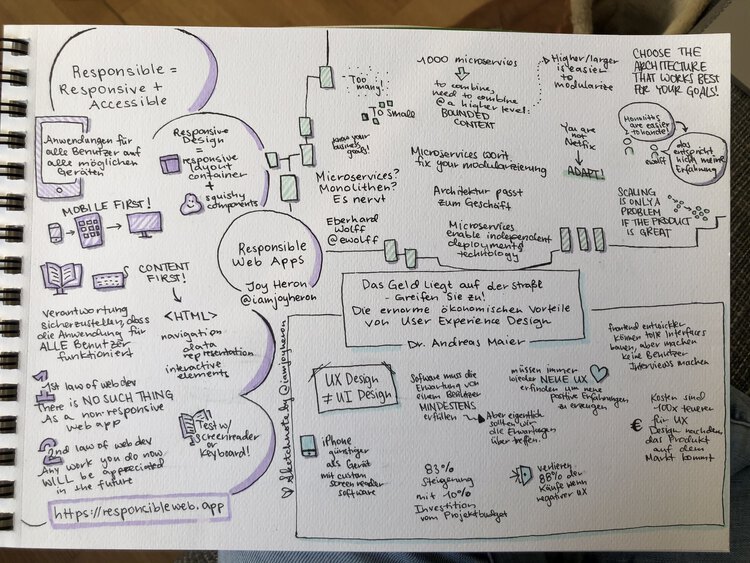 Responsible =
Responsive +
Accessible
Anwendungen für
alle Benutzer auf
alle möglichen
Geräten
Responsive
Design
=
responsive
layout
container
+
squishy
components
MOBILE FIRST!
CONTENT
FIRST!
Verantwortung
sicherzustellen, dass
die Anwendung für
ALLE Benutzer
funktioniert
<HTML>
navigation
data
representation
interactive
elements
Responsible
Web Apps
Joy Heron
@iamjoyheron
1st law of web dev
There is NO SUCH THING
As a non responsive
web app
2nd law of web dev
Any work you do now
WILL be appreciated
in the future
Test w/
screenreader
keyboard!
https://responsibleweb.app
Sketchnote by @iamjoyheron
Too
many!
To Small
know your
business
goals!
Microservices?
Monolithen?
Es nervt
Eberhard
Wolff
@ewolff
1000 microservices
to combine,
need to combine
@ a higher level:
BOUNDED
CONTEXT
Higher/larger
is easier
to
modularize
Microservices won't
fix your modularizierung
Architektur passt
zum Geschäft
Microservices
enable independent
deployments
technology
You are
not
Netflix
ADAPT!
CHOOSE THE
ARCHITECTURE
THAT WORKS BEST
FOR YOUR GOALS!
Monoliths
are easier
to handle!
das
entspricht
nicht meine
Erfahrung
ewolff
SCALING
IS ONLY A
PROBLEM
IF THE PRODUCT
IS GREAT
Das Geld liegt auf der straße
- Greifen Sie zu!
Die enorme ökonomischen Vorteile
von User Experience Design
Dr. Andreas Maier
UX Design
≠ UI Design
Sofware muss die
Erwartung von
einem Benutzer
MINDESTENS
erfüllen
Aber eigentlich
sollten wir
die Erwartungen
über treffen.
müssen immer
wieder NEUE UX
erfinden um neue
positive Erfahrungen
zu erzeugen
frontend entwickler
können tolle Interfaces
bauen, aber machen
keine Benutzer
Interviews machen
iPhone
günstiger
als Gerät
mit custom
screenreader
software
83%
Steigerung
mit 10%
Investition
vom Projektbudget
verlieren
88% der
Käufe wenn
negativer UX
€
Kosten sind
100x teuerer
für UX
Design nachdem
das Produkt
auf dem
Markt kommt